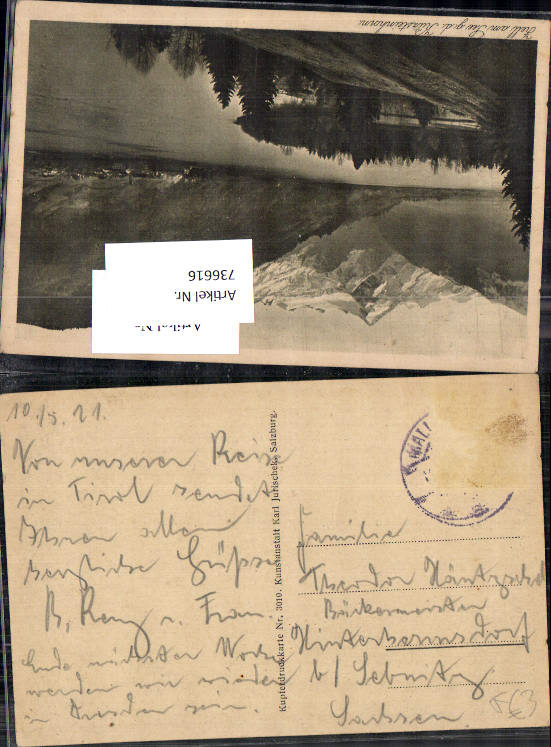 Zell am See g. d. Kitzsteinhorn
Artikel Nr.
736616
10./5. 21.
Von unserer Reise
in Tirol sendet
Ihnen allen
herzliche Grüsse
B. Renz u. Frau.
Ende nächster Woche
werden wir wieder
in Dresden sein.
Kupferdruckkarte Nr. 3010. Kunstanstalt Karl Jurischek, Salzburg.
Familie
Theodor
Bäckermeister
Hinterhermsdorf
b/ Sebnitz
Sachsen.